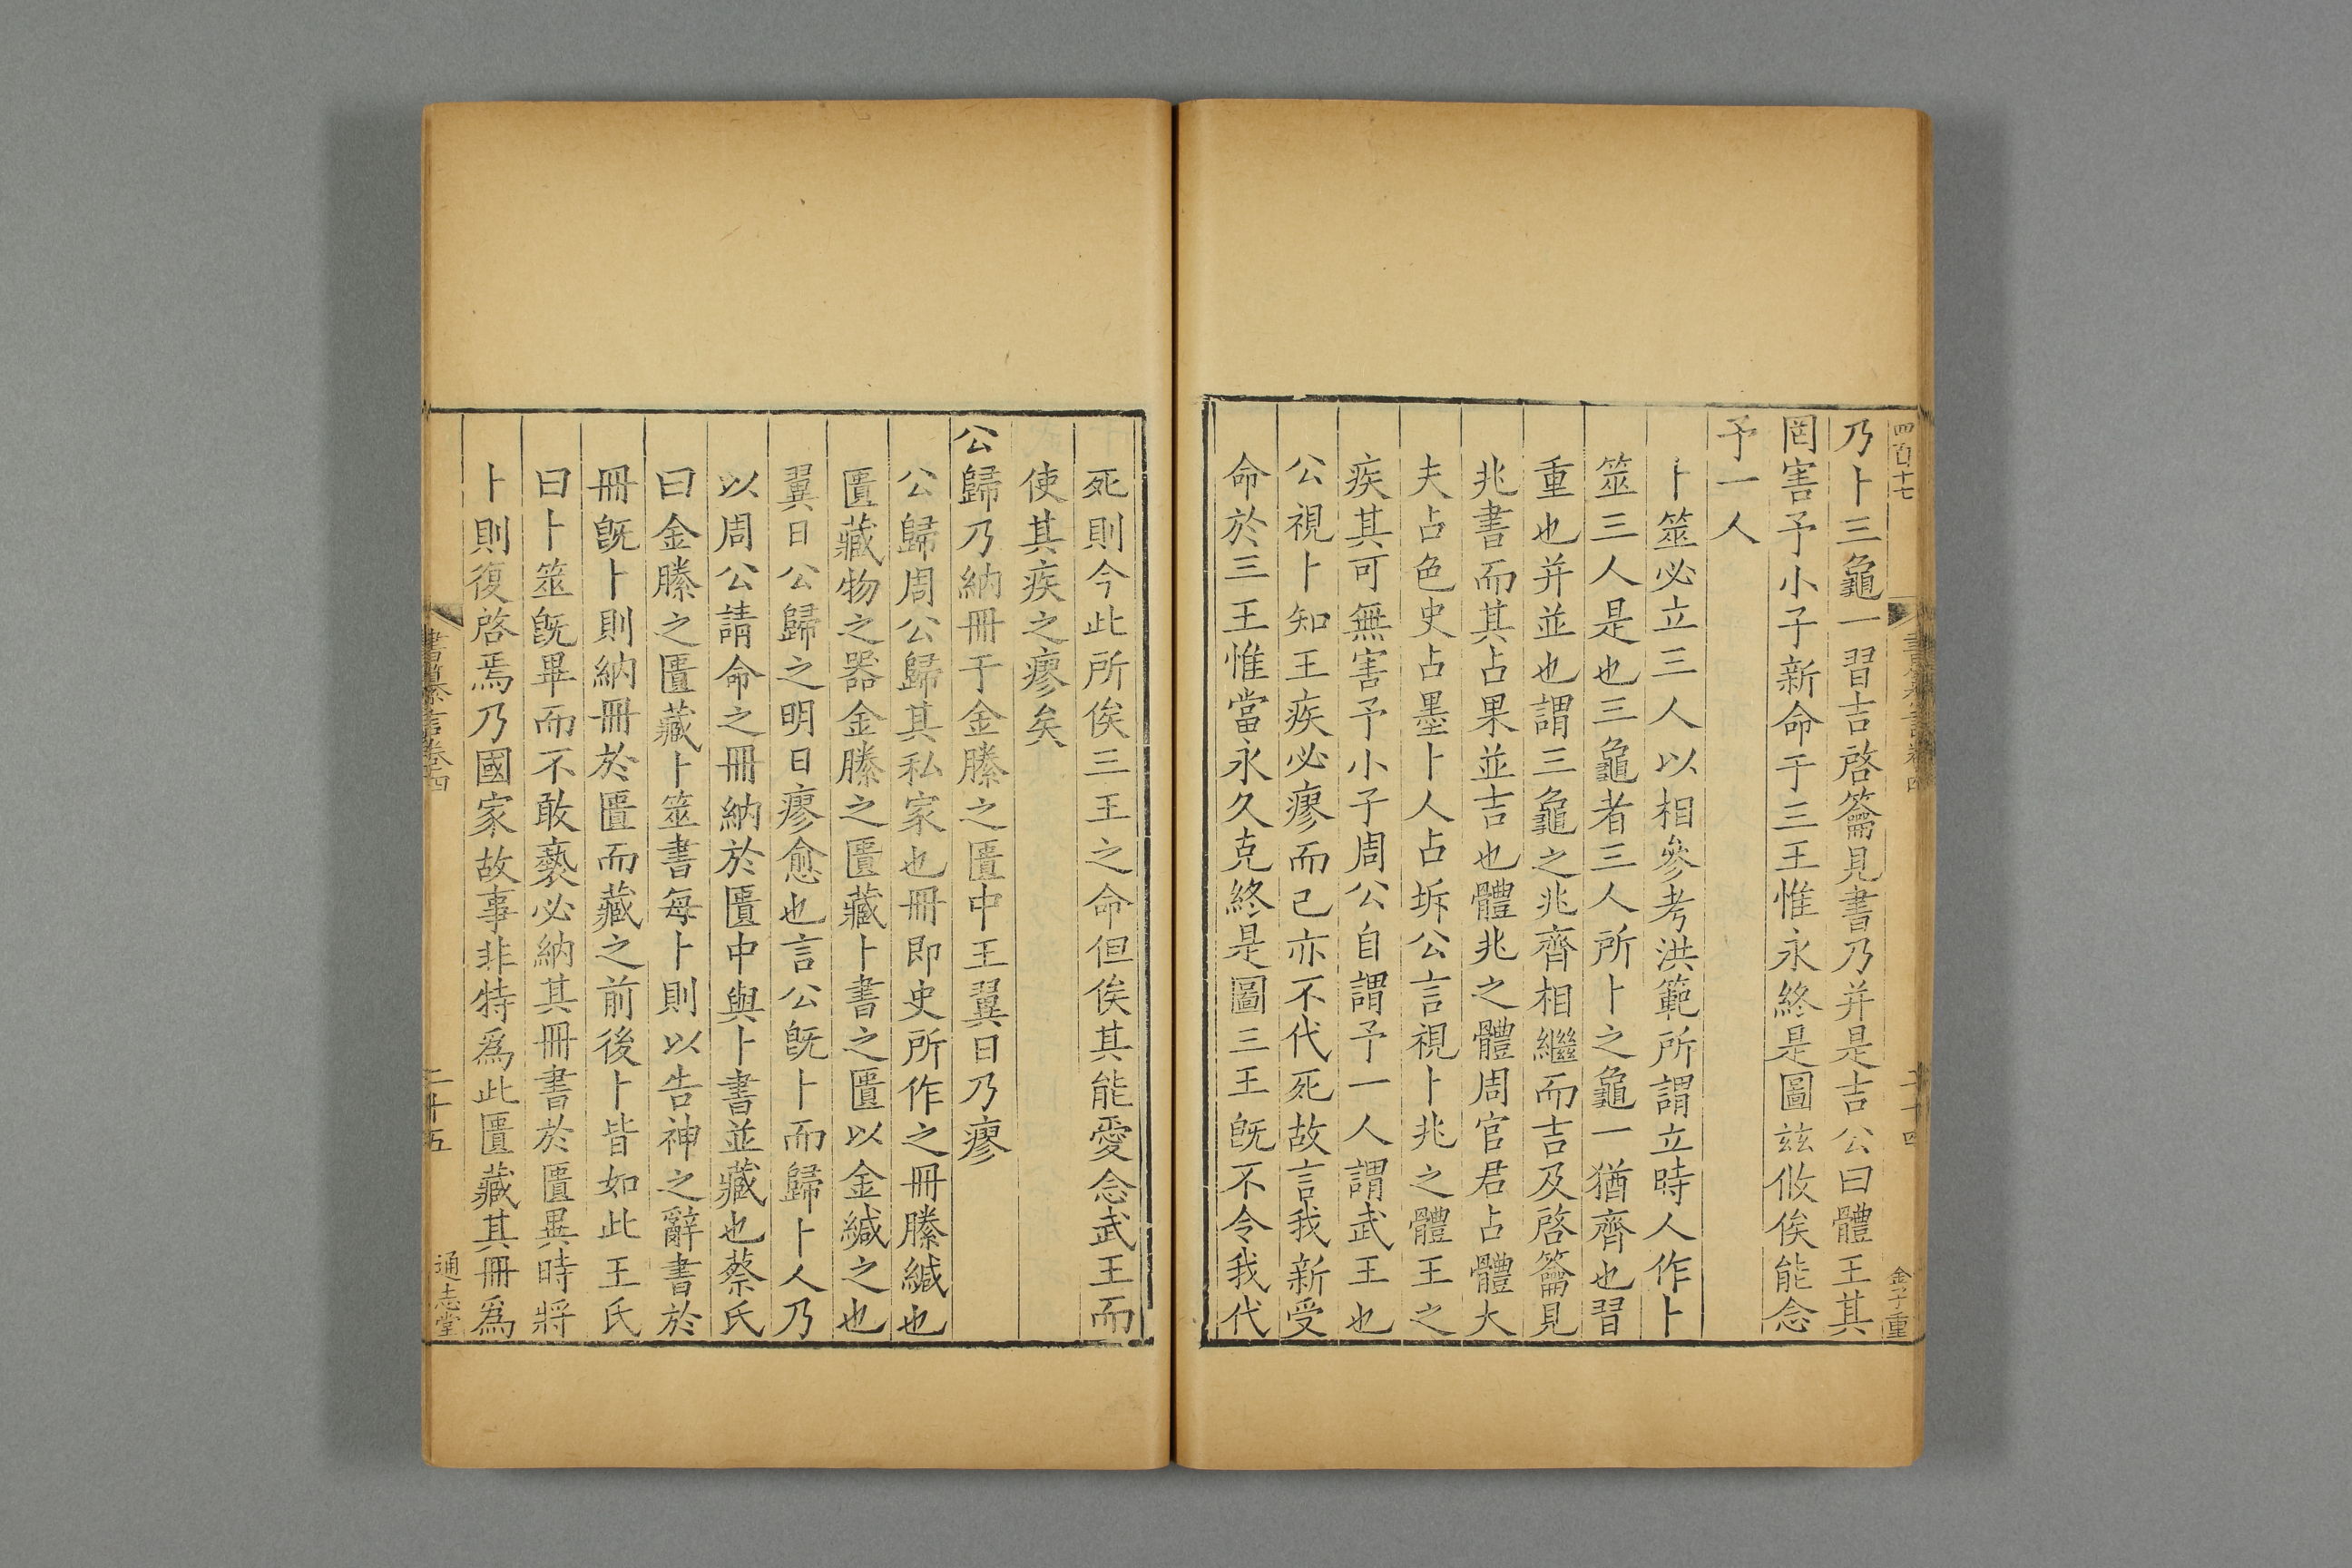 四百十七
書纂言卷四
二十四
金子重
乃卜三龜一習吉啓籥見書乃并是吉公曰體王其
罔害予小子新命于三王惟永終是圖玆攸俟能念
予一人
卜筮必立三人以相參考洪範所謂立時人作卜
筮三人是也三龜者三人所卜之龜一猶齊也習
重也并並也謂三龜之兆齊相繼而吉及啓籥見
兆書而其占果並吉也體兆之體周官君占體大
夫占色史占墨卜人占坼公言視卜兆之體王之
疾其可無害予小子周公自謂予一人謂武王也
公視卜知王疾必瘳而己亦不代死故言我新受
命於三王惟當永久克終是圖三王旣不令我代
死則今此所俟三王之命但俟其能愛念武王而
使其疾之瘳矣
公歸乃納冊于金縢之匱中王翼日乃瘳
公歸周公歸其私家也冊即史所作之冊縢緘也
匱藏物之器金縢之匱藏卜書之匱以金緘之也
翼日公歸之明日瘳愈也言公旣卜而歸卜人乃
以周公請命之冊納於匱中與卜書並藏也蔡氏
曰金縢之匱藏卜筮書每卜則以告神之辭書於
冊旣卜則納冊於匱而藏之前後卜皆如此王氏
曰卜筮旣畢而不敢褻必納其冊書於匱異時將
卜則復啓焉乃國家故事非特爲此匱藏其冊爲
書纂言卷四
二十五
通志堂